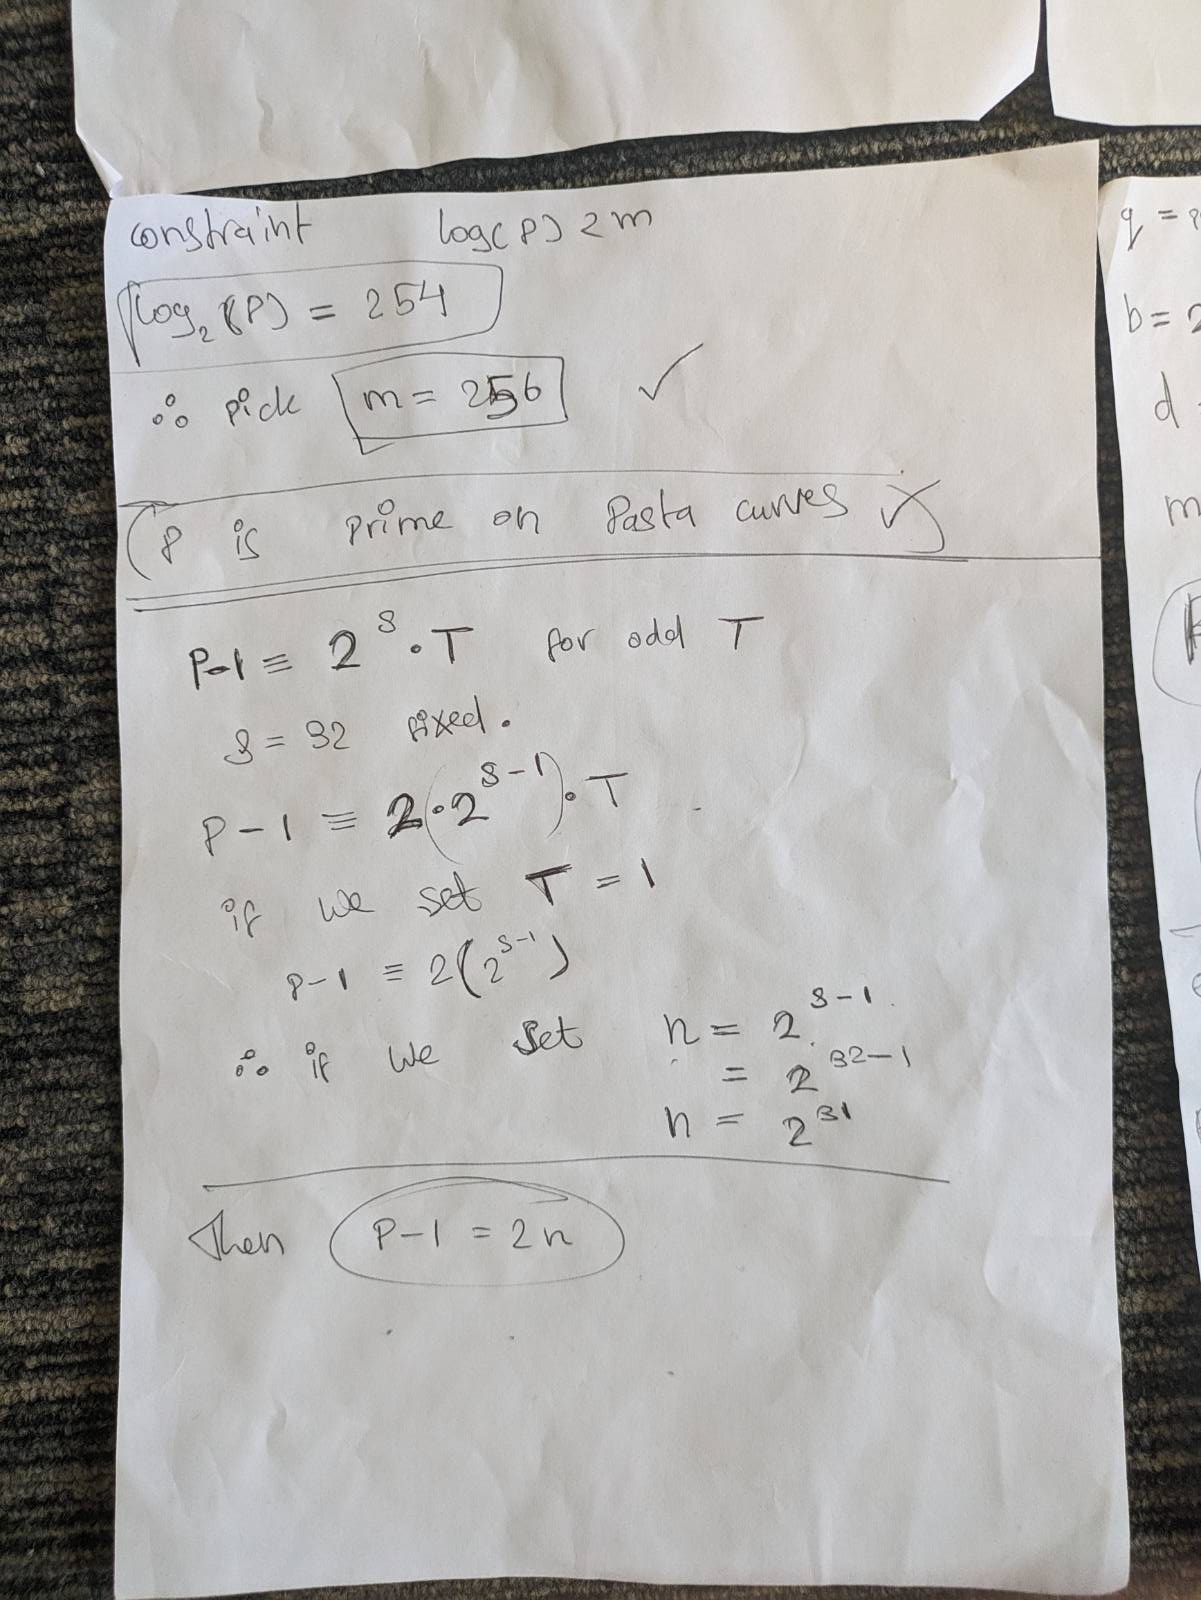 constraint log(P) < m
log₂(P) = 254
∴ pick m = 256 ✓
(P is prime on Pasta curves X)
P-1 ≡ 2^S · T for odd T
S = 32 fixed.
P-1 ≡ 2(·2^{S-1})·T
if we set T = 1
P-1 ≡ 2(2^{S-1})
∴ if we set n = 2^{S-1}
= 2^{32-1}
n = 2^{31}
Then P-1 = 2n
q =
b = 2
d
m